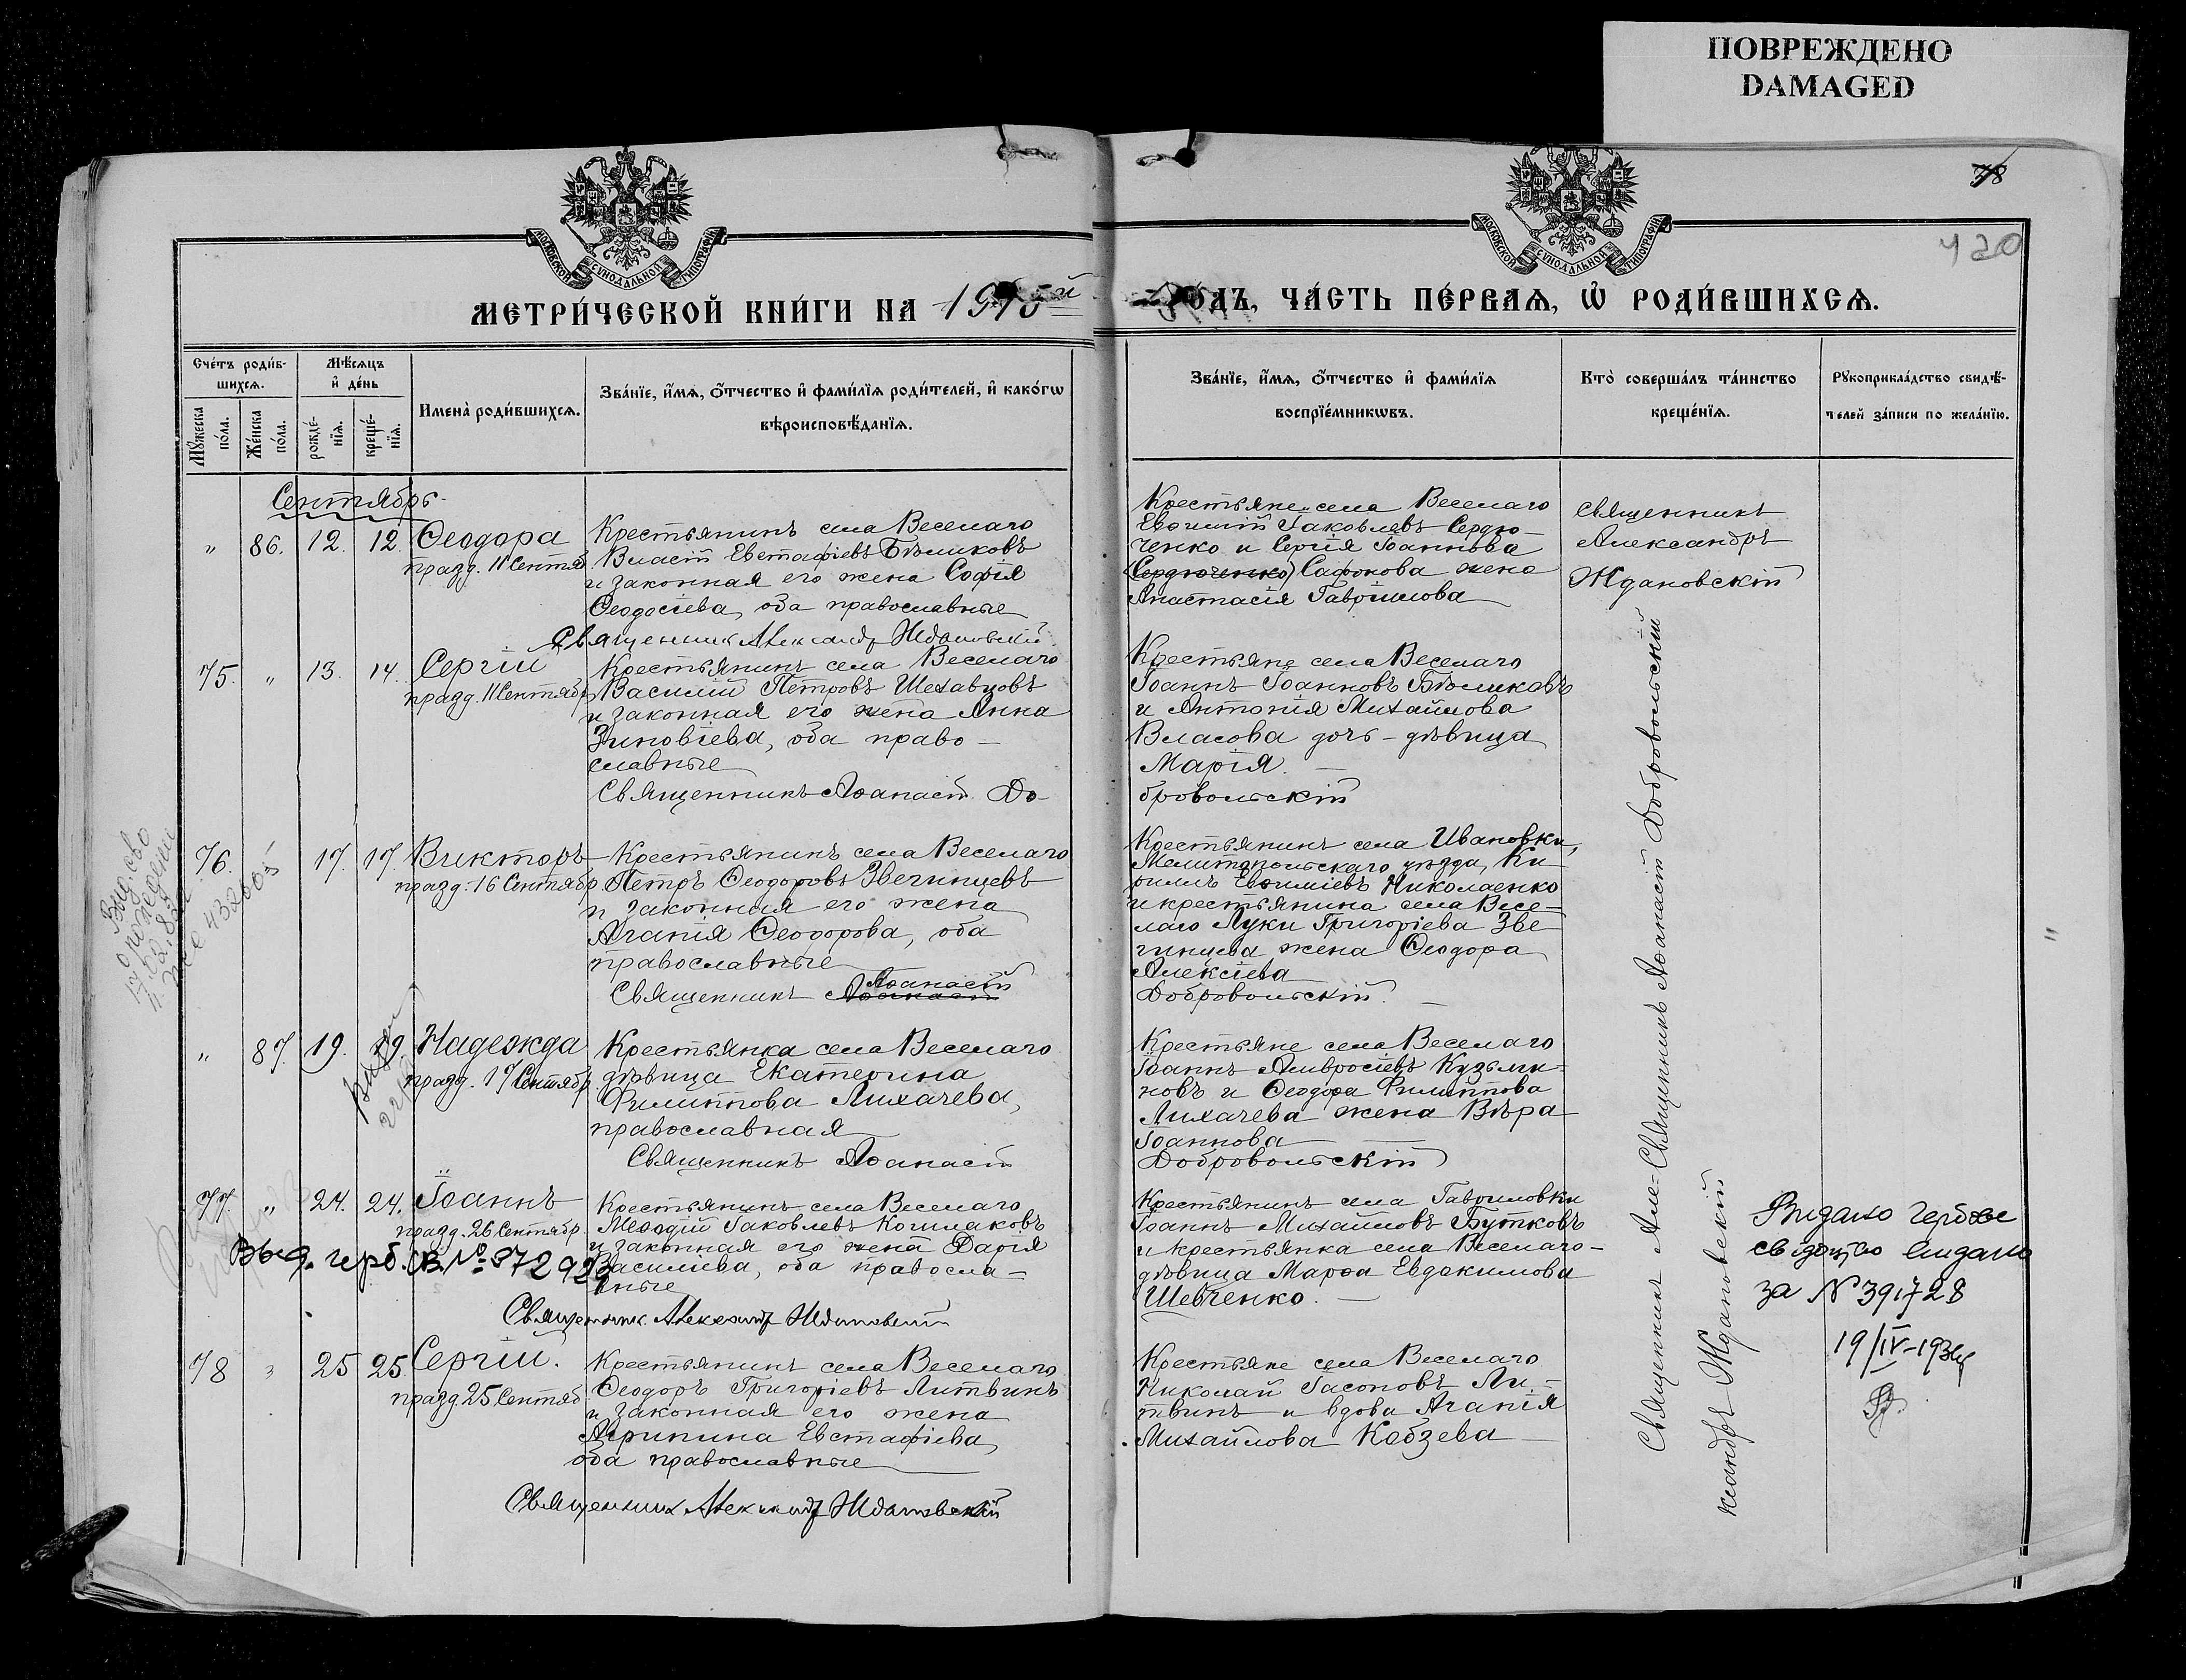 ПОВРЕЖДЕНО
DAMAGED
78
420
МОСКОВСКОЙ СУНОДАЛЬНОЙ ТИПОГРАФІИ
МОСКОВСКОЙ СУНОДАЛЬНОЙ ТИПОГРАФІИ
МЕТРИ́ЧЕСКОЙ КНИ́ГИ НА 1915й
ГО́ДЪ, ЧА́СТЬ ПЕ́РВАѦ, Ѡ҆ РОДИ́ВШИХСѦ.
Сче́тъ роди́в-
шихсѧ.
Мѣ́сѧцъ
и҆ де́нь
Мꙋ́жеска
по́ла.
Же́нска
по́ла.
рожде́-
нїѧ.
креще́-
нїѧ.
Имена̀ роди́вшихсѧ.
Зва́нїе, и҆́мѧ, ѻ҆́тчество и҆ фами́лїѧ роди́телей, и҆ како́гѡ
вѣроисповѣ́данїѧ.
Зва́нїе, и҆́мѧ, ѻ҆́тчество и҆ фами́лїѧ
воспрїе́мникѡвъ.
Кто̀ соверша́лъ та́инство
креще́нїѧ.
Рꙋкоприкла́дство свидѣ́-
телей за́писи по жела́нїю.
Сентябрь
" 86. 12. 12. Ѳеодора
празд. 11 Сентяб.
Крестьянинъ села Веселаго
Власій Евстафіевъ Бѣликовъ
и законная его жена Софія
Ѳеодосіева, оба православные
Священник Александр Ждановский
Крестьяне села Веселаго
Евѳимій Іаковлевъ Сердю-
ченко и Сергія Іоаннова
(Сердюченко) Сафонова жена
Анастасія Гавріилова
Священникъ
Александръ
Ждановскій
75. " 13. 14. Сергій
празд. 11 Сентябр.
Крестьянинъ села Веселаго
Василій Петровъ Шехавцовъ
и законная его жена Анна
Зиновіева, оба право-
славные
Священникъ Аѳанасій До-
Крестьяне села Веселаго
Іоаннъ Іоанновъ Бѣликовъ
и Антонія Михайлова
Власова дочь-дѣвица
Марія.
бровольскій
76. 17. 17. Викторъ
празд. 16 Сентябр.
Крестьянинъ села Веселаго
Петръ Ѳеодоровъ Звегинцевъ
и законная его жена
Агапія Ѳеодорова, оба
православные
Священникъ Аѳанасій Аѳанасій
Крестьянинъ села Ивановки,
Мелитопольскаго уѣзда, Ки-
риллъ Евѳиміевъ Николаенко
и крестьянина села Весе-
лаго Луки Григоріева Зве-
гинцева жена Ѳеодора
Алексіева
Добровольскій.
" 87. 19. 19. Надежда
празд. 17 Сентябр.
Крестьянка села Веселаго
дѣвица Екатерина
Филиппова Лихачева,
православная
Священникъ Аѳанасій
Крестьяне села Веселаго
Іоаннъ Амвросіевъ Кузьми-
новъ и Ѳеодора Филиппова
Лихачева жена Вѣра
Іоаннова
Добровольскій
77. " 24. 24. Іоаннъ
празд. 26 Сентябр.
Выд. герб. св. №
Крестьянинъ села Веселаго
Меѳодій Іаковлевъ Кошлаковъ
и законная его жена Дарія
Василіева, оба правосла-
вные
Священник Александр Ждановский
Крестьянинъ села Гавриловки
Іоаннъ Михайловъ Бутковъ
и крестьянка села Веселаго-
дѣвица Марѳа Евдокимова
Шевченко.
Видано
за № 391728
19/IV-193
78 " 25 25 Сергій.
празд. 25 Сентяб.
Крестьянинъ села Веселаго
Ѳеодоръ Григоріевъ Литвинъ
и законная его жена
Агрипина Евстафіева,
оба православные
Священник Александр Ждановский
Крестьяне села Веселаго
Николай Іасоновъ Ли-
твинъ и вдова Агапія
Михайлова Кобзева
Священникъ Аѳанасій Добровольскій
Священникъ Але-
ксандръ Ждановскій